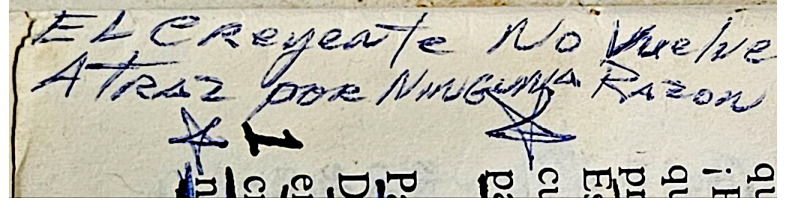 EL CReyente No Vuelve
ATRAZ por NINGUNA RAZON
1